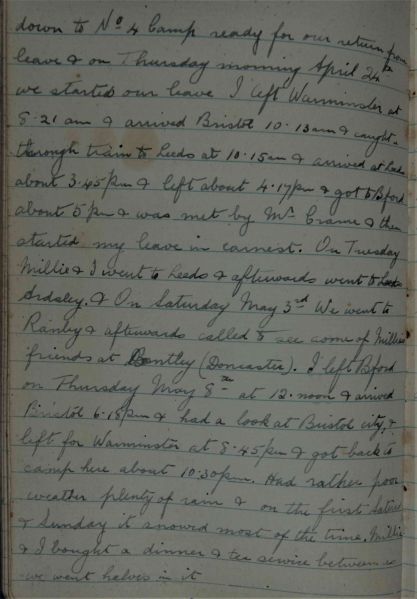 down to No 4 Camp ready for our return from
leave & on Thursday morning April 24th
we started our leave I left Warminster at
8.21 am & arrived Bristol 10.13am & caught
through train to Leeds at 10.15am & arrived at Leeds
about 3.45pm & left about 4.17pm & got to Bford
about 5pm & was met by Mr Crane & then
started my leave in earnest. On Tuesday
Millie & I went to Leeds & afterwards went to
Ardsley. & On Saturday May 3rd We went to
Ranby & afterwards called to see some of Millies
friends at Bentley (Doncaster). I left Bford
on Thursday May 8th at 12.noon & arrived
Bristol 6.18pm & had a look at Bristol city, &
left for Warminster at 8.45pm & got back to
camp here about 10.30pm. Had rather poor
weather plenty of rain & on the first Saturd
& Sunday it snowed most of the time. Millie
& I bought a dinner & tea service between us
we went halves in it